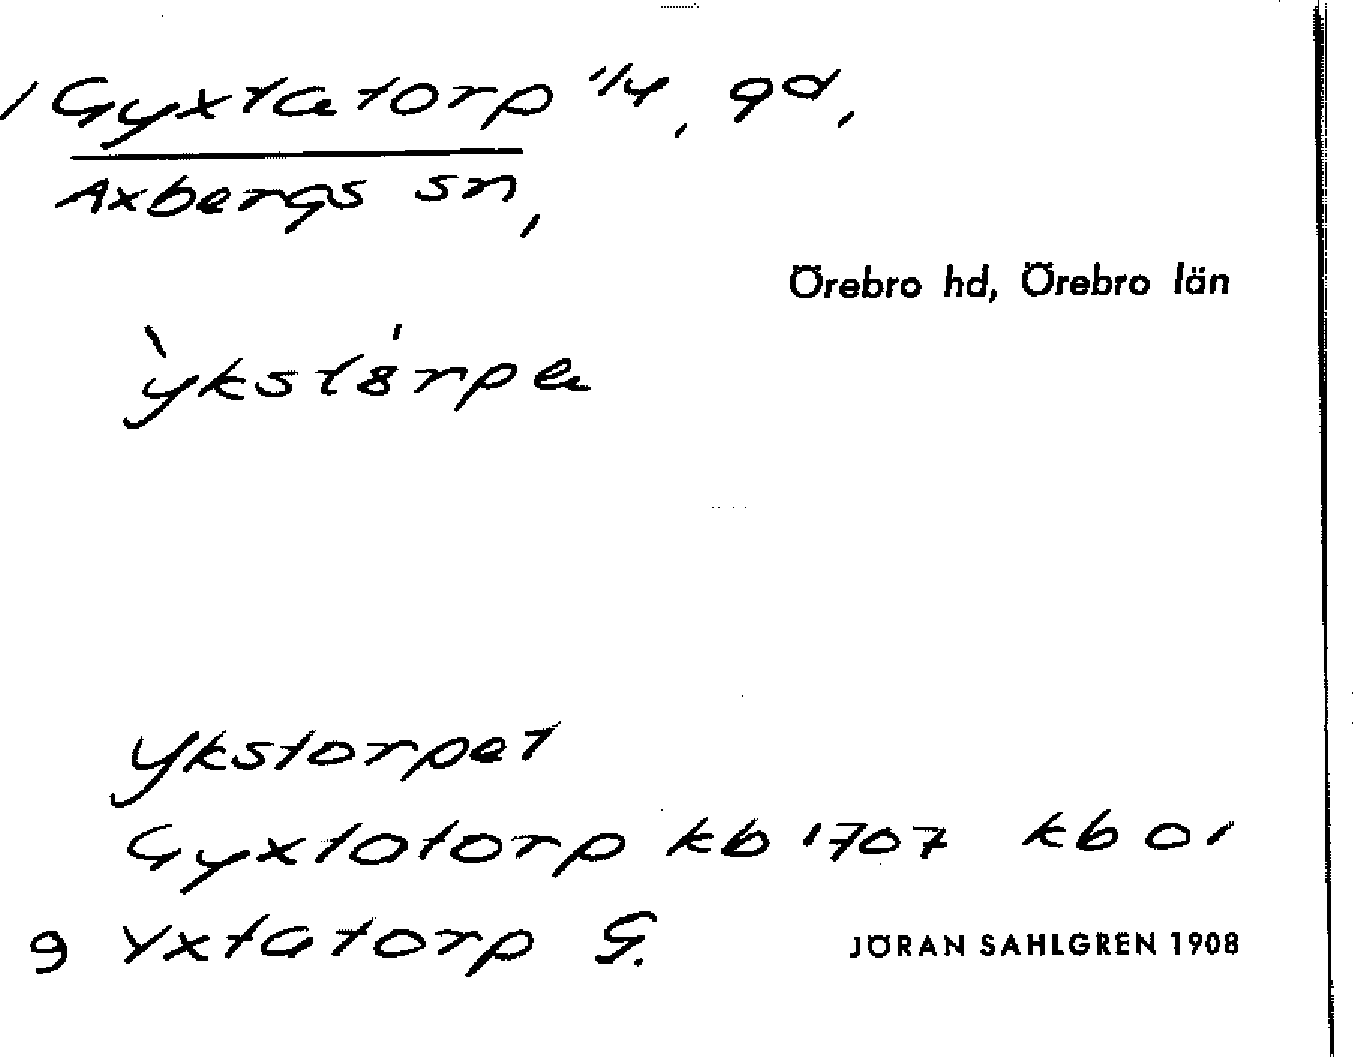 / Gyxtatorp 1/4, gd,
Axbergs sn,
Örebro hd, Örebro län
Ykstorpet
Gyxtotorp kb 1707 kb 01
9 Yxtatorp G.
JÖRAN SAHLGREN 1908